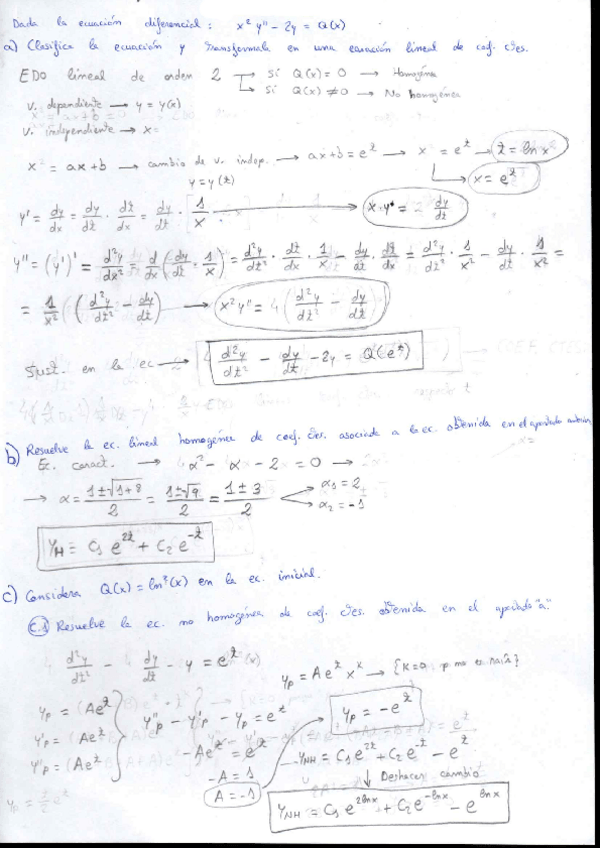 Dada la ecuación diferencial: x² y'' - 2y = Q(x)
a) Clasifica la ecuación y transformala en una ecuación lineal de coef. ctes.
EDO lineal de orden 2 → Si Q(x) = 0 → Homogénea
→ Si Q(x) ≠ 0 → No homogénea
v. dependiente → y = y(x)
v. independiente → x
x = ax+b → cambio de v. indep. → ax+b = e^t → x = e^t → t = ln x
→ x = e^t
y = y(t)
y' = dy/dx = dy/dt · dt/dx = dy/dt · 1/x → x·y' = dy/dt
y'' = (y')' = d²y/dx² = d/dx (dy/dt · 1/x) = d²y/dt² · dt/dx · 1/x - dy/dt · dt/dx = d²y/dt² · 1/x² - dy/dt · 1/x² =
= 1/x² (d²y/dt² - dy/dt) → x²y'' = (d²y/dt² - dy/dt)
Sust. en la ec → d²y/dt² - dy/dt - 2y = Q(e^t)
b) Resuelve la ec. lineal homogénea de coef. ctes. asociada a la ec. obtenida en el apartado anterior
Ec. caract. → α² - α - 2 = 0 →
→ α = (1 ± √(1+8))/2 = (1 ± √9)/2 = (1 ± 3)/2 → α₁ = 2
→ α₂ = -1
y_H = C₁ e^{2t} + C₂ e^{-t}
c) Considera Q(x) = ln²(x) en la ec. inicial.
c.1 Resuelve la ec. no homogénea de coef. ctes. obtenida en el apartado "a".
d²y/dt² - dy/dt - y = e^t
y_p = A e^t x^k → {k=0, p no es raíz}
y_p = (Ae^t)
y'_p = (Ae^t)
y''_p = (Ae^t)
y''_p - y'_p - y_p = e^t
-Ae^t = e^t
-A = 1
A = -1
y_p = -e^t
y_NH = C₁ e^{2t} + C₂ e^{-t} - e^t
↓ Deshacer cambio
y_NH = C₁ e^{2 ln x} + C₂ e^{-ln x} - e^{ln x}